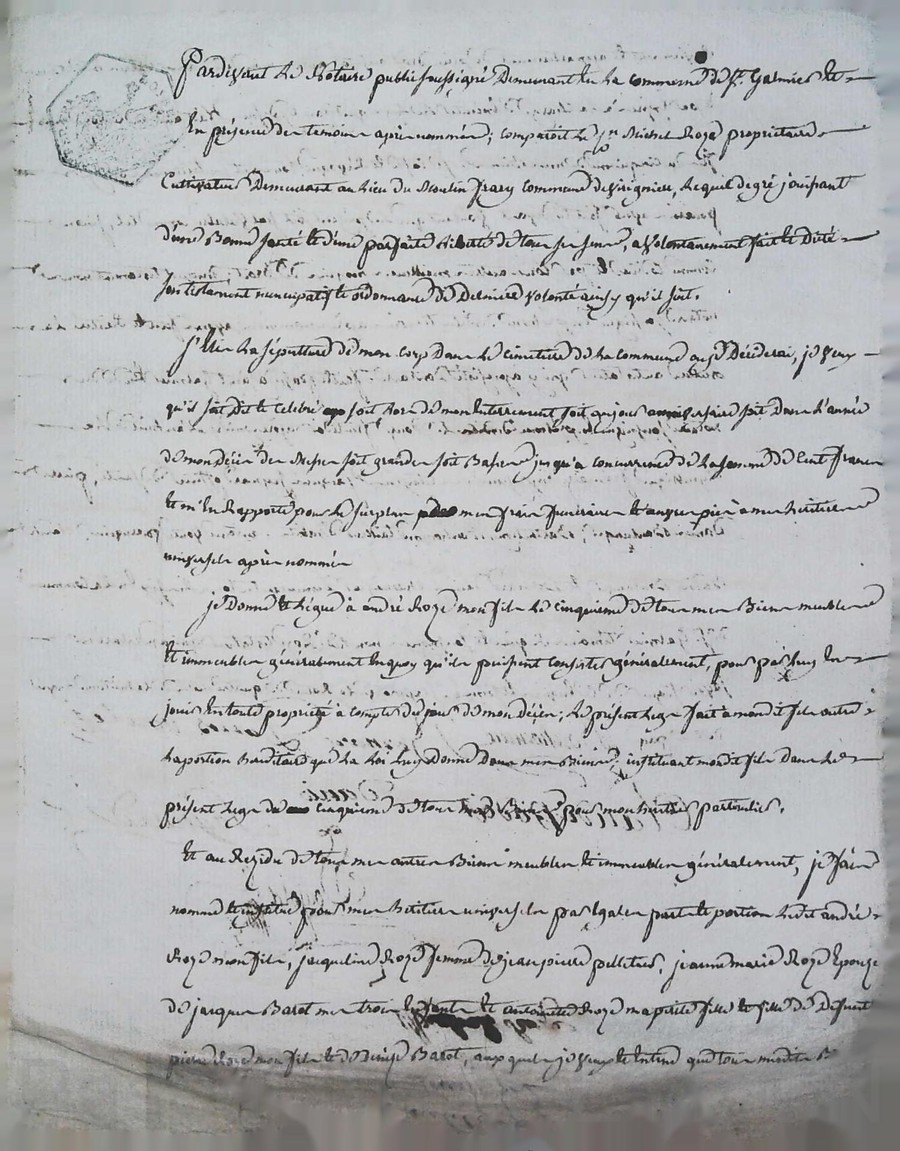 Pardevant le Notaire public soussigné Demeurant en la commune de St. Galmier et
En présence des temoins après nommés; comparoit le sr. Michel Royé propriétaire
Cultivateur Demeurant au lieu du Moulin frary Commune de virignieu, lequel de gré jouissant
d'une Bonne santé et d'une parfaite liberté de tous ses sens, a Volontairement fait et Dicté
son testament nuncupatif et ordonnance de Derniere Volonté ainsy qu'il suit.
j'Elis la sépulture de mon corps Dans le cimetiere de la commune ou je Décéderai, je veux
qu'il soit Dit et Celebré soit lors de mon Enterrement soit au jour anniversaire soit Dans l'année
de mon Décès des Messes soit grandes soit Basses jusqu'a concurrence de la somme de Cent francs
Et m'En Rapporte pour le surplus de mes frais funeraires et œuvres pies a mes héritiers
universels après nommés
je Donne et Légue à andré Royé mon fils le cinquieme de tous mes Biens meubles
Et immeubles généralement En quoy qu'ils puissent consister généralement, pour par luy En
jouir En toute propriété à compter du jour de mon Décès; le présent Legs fait a mondit fils outre
la portion hereditaire que la Loi luy Donne Dans mes Biens, instituant mondit fils dans le
présent Legs du cinquieme de tous mes Biens pour mon héritier particulier.
Et au Rezidu de tous mes autres Biens meubles et immeubles généralement, je fais
nomme et institue pour mes héritiers universels par Egales part et portion ledit andré
Royé mon fils, jacqueline Royé femme de jean pierre pelletier, jeanne marie Royé Epouse
de jacques Barot mes trois Enfants et antoinette Royé ma petite fille et fille de Defunt
pierre Royé mon fils et de Denise Barot, auxquels je veux et Entend que tous mesdits B